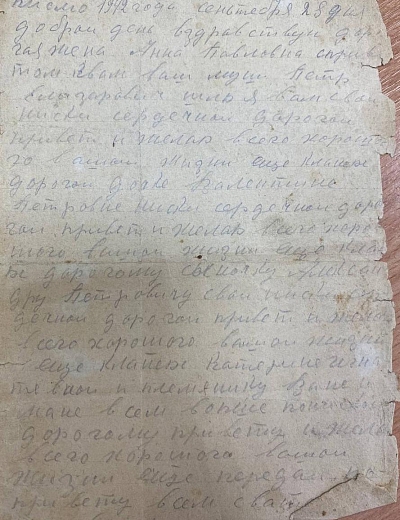 письмо 1942 года сеньтебря 28 дня
доброй день вздравствуй дор
гая жена Анна Павловна с приве
том к вам ваш муж Петр
шлю я вам свой
ниски сердечной дорогой
привет и желаю всего хороше
го вашой жизни еще кланеюсь
дорогой дочке Валентине
Петровне ниски сердечной доро
гой привет и желаю всего хоро
шого вашой жизни еще клан
дорогому сыночку Алексан
дру Петровичу свой ниски сер
дечной дорогой привет и желаю
всего хорошого вашой жизни
еще кланеюсь Катерине
и племянику Ване и
мане всем вопще по
дорогому привету и жела
всего хорошого вашой
жизни еще передаю по
привету всем сват